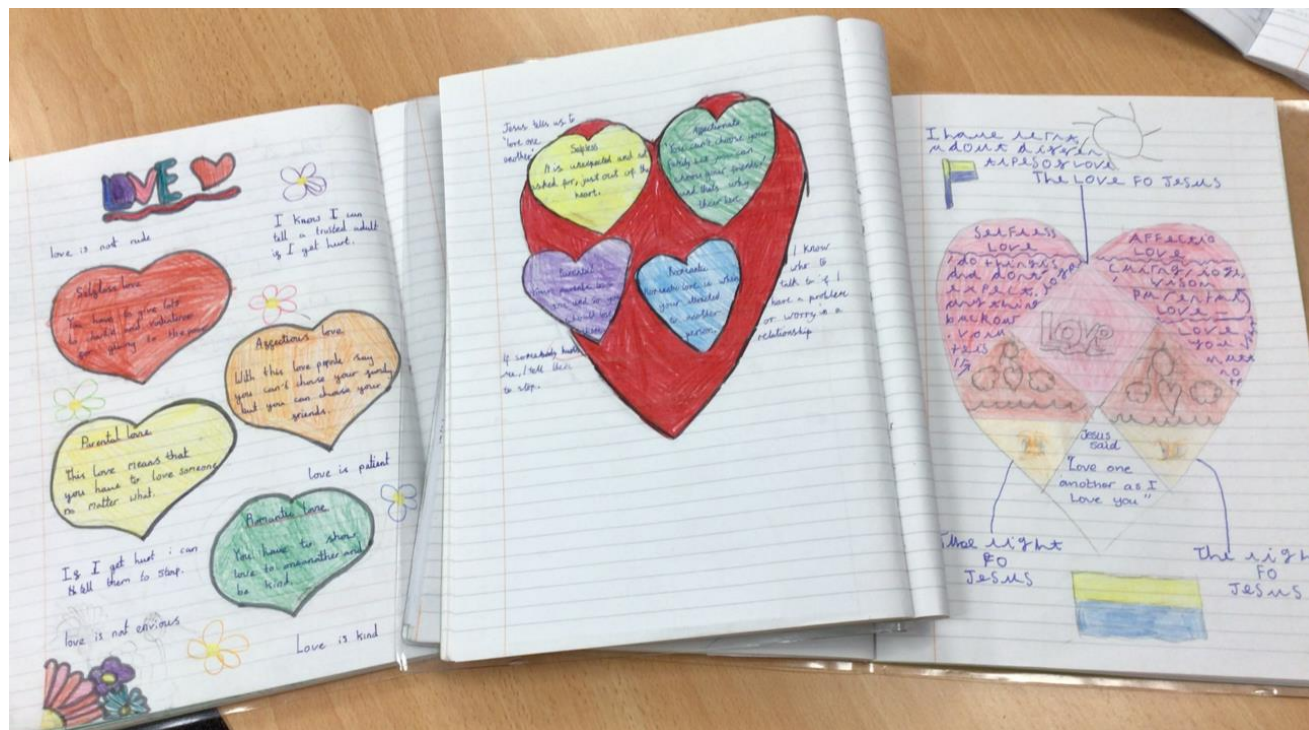 LOVE
love is not rude
I know I can
tell a trusted adult
if I get hurt.
Selfless love
You have to give lots
for giving to the
Affectious love
With this love people say
you can't choose your family
but you can choose your
friends.
Parental love
This love means that
you have to love someone
no matter what.
love is patient
Romantic love
You have to show
love to onanother and
be kind.
If I get hurt i can
tell them to stop.
love is not envious
Love is kind
Jesus tells us to
"love one
another"
Selfless
It is unexpected and not
asked for, just out of the
heart.
Affectionate
"You can't choose your
family but you can
choose your friends"
and thats why
their
Parental
Romantic
Romantic love is when
your attracted
to another
person.
I know
who to
talk to if I
have a problem
or worry in a
relationship
If somebody hurts
me, I tell them
to stop.
I have
about
tipes of love
The Love Fo Jesus
Selfless
Love
do things
and dont
expect
anything
back
this
Affectio
Love
Parental
Love
Love
you
no
LOVE
Jesus
said
"Love one
another as I
Love you"
The light
Fo
Jesus
The
Fo
Jesus